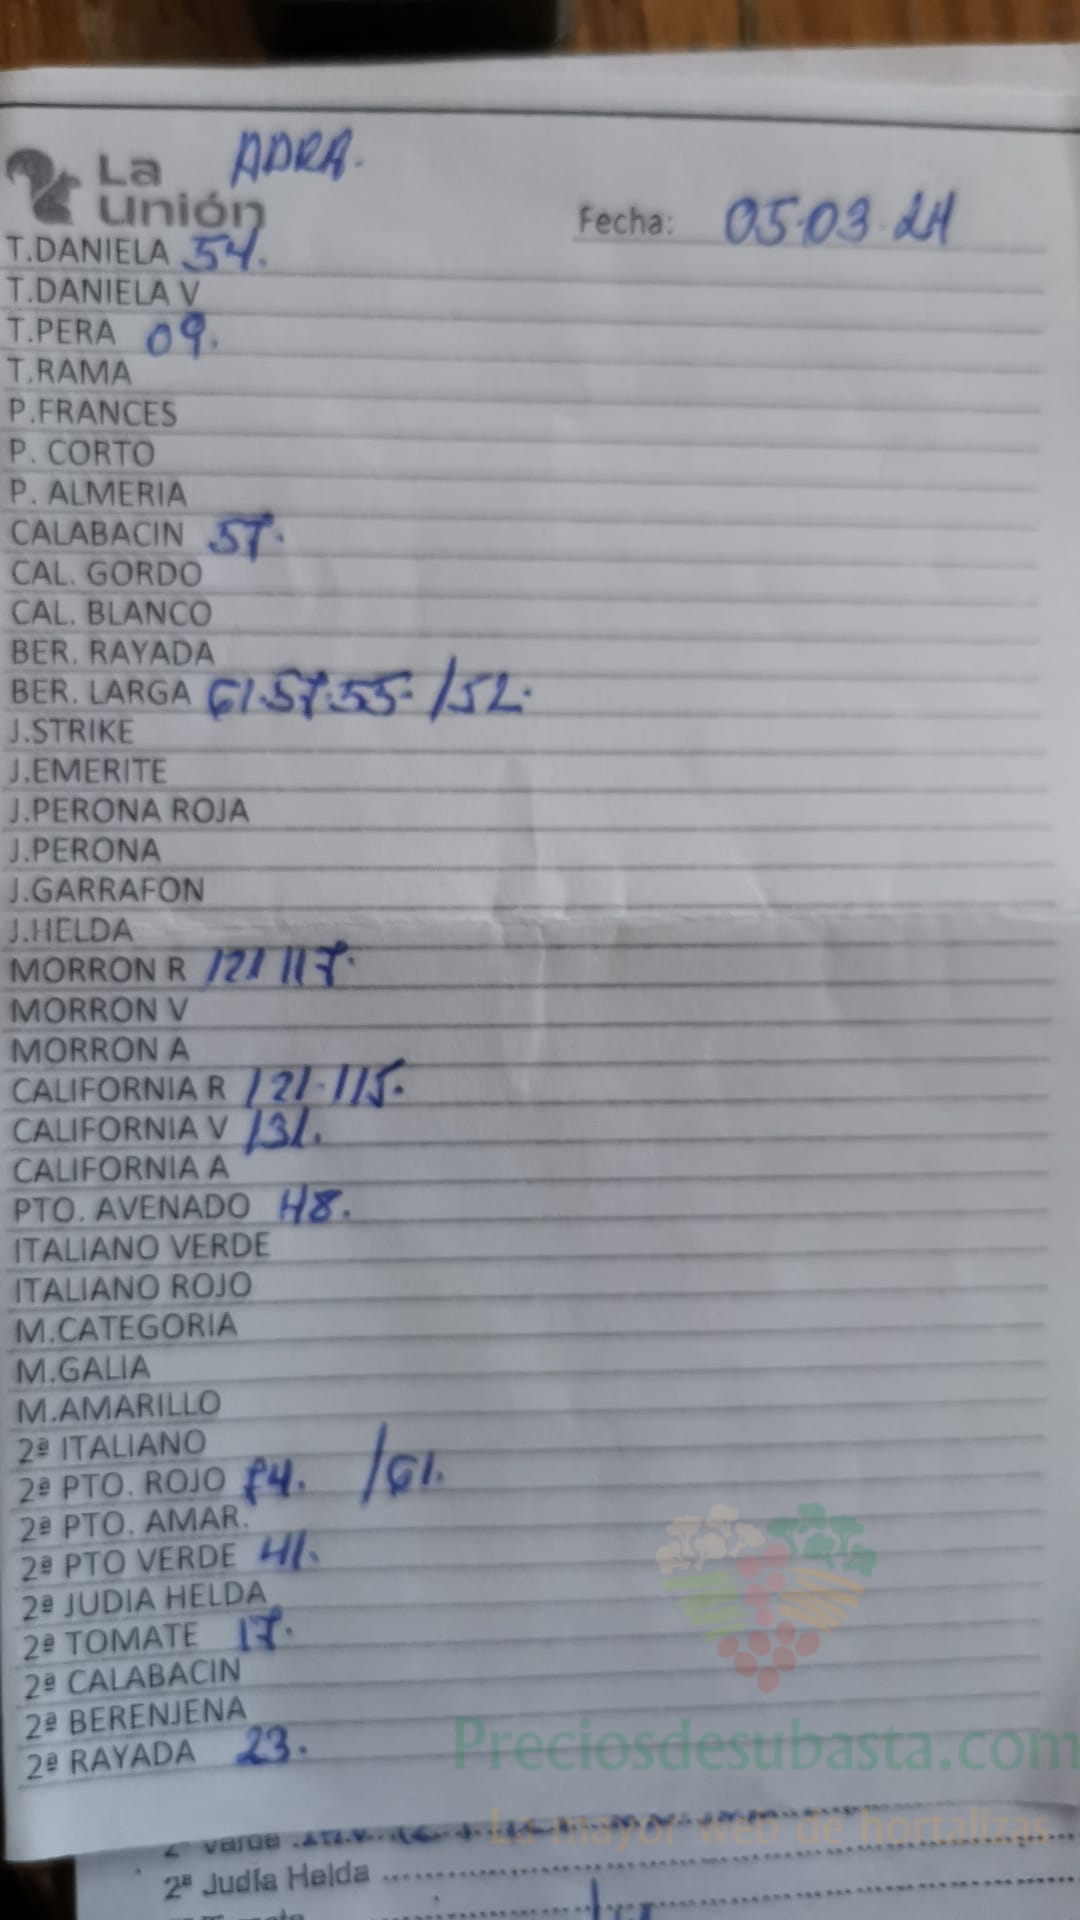 La Unión ADRA.
Fecha: 05-03-24
T.DANIELA 54.
T.DANIELA V
T.PERA 09.
T.RAMA
P.FRANCES
P. CORTO
P. ALMERIA
CALABACIN 57.
CAL. GORDO
CAL. BLANCO
BER. RAYADA
BER. LARGA 61.57.55- /52.
J.STRIKE
J.EMERITE
J.PERONA ROJA
J.PERONA
J.GARRAFON
J.HELDA
MORRON R 121 117.
MORRON V
MORRON A
CALIFORNIA R 121-115.
CALIFORNIA V 131.
CALIFORNIA A
PTO. AVENADO 48.
ITALIANO VERDE
ITALIANO ROJO
M.CATEGORIA
M.GALIA
M.AMARILLO
2ª ITALIANO
2ª PTO. ROJO 74. /61.
2ª PTO. AMAR.
2ª PTO VERDE 41.
2ª JUDIA HELDA
2ª TOMATE 17.
2ª CALABACIN
2ª BERENJENA
2ª RAYADA 23.
Preciosdesubasta.com
La mayor web de hortalizas
2ª Judía Helda